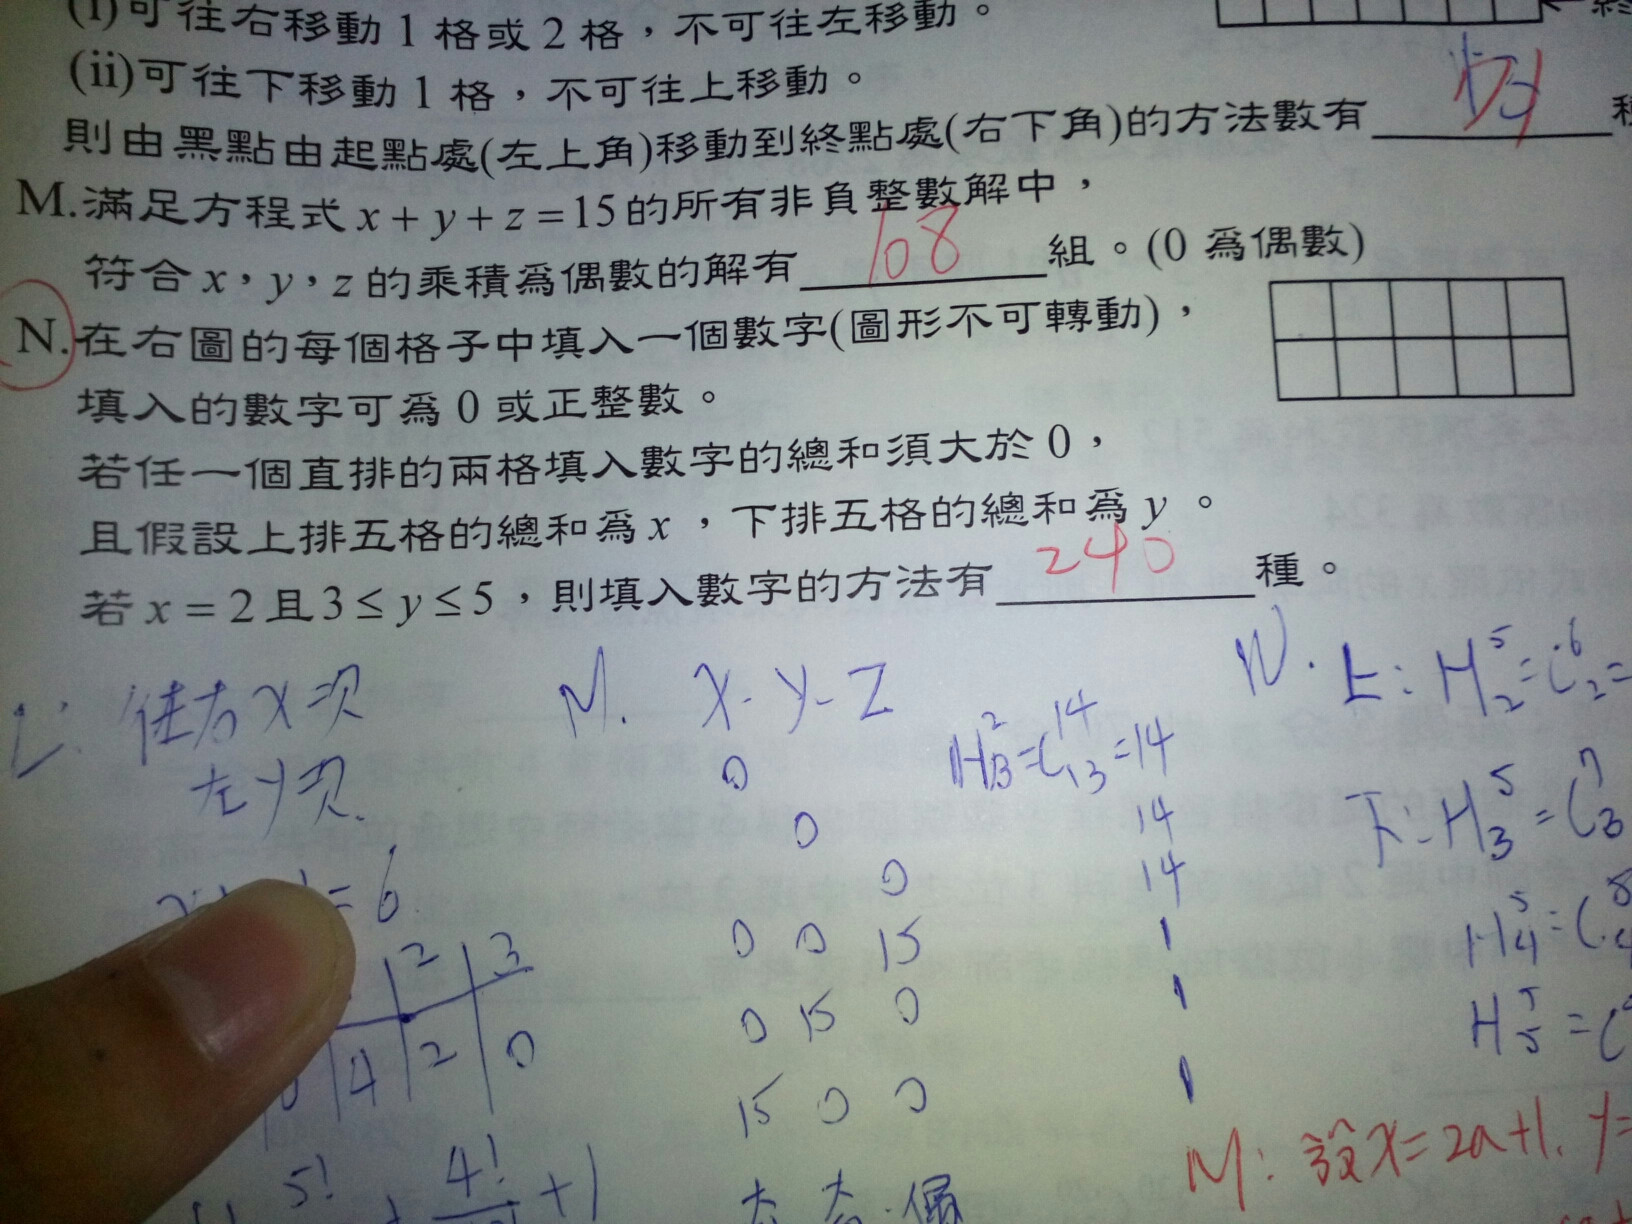 (i)可往右移動1格或2格，不可往左移動。
(ii)可往下移動1格，不可往上移動。
則由黑點由起點處(左上角)移動到終點處(右下角)的方法數有
M.滿足方程式x+y+z=15的所有非負整數解中，
符合x，y，z的乘積為偶數的解有 108 組。(0為偶數)
N.在右圖的每個格子中填入一個數字(圖形不可轉動)，
填入的數字可為0或正整數。
若任一個直排的兩格填入數字的總和須大於0，
且假設上排五格的總和為x，下排五格的總和為y。
若x=2且3≤y≤5，則填入數字的方法有 240 種。
L: 往右X次
左y次.
=6
2 3
4 2 0
5!
4!
+1
M. X-Y-Z
0
0
0
0 0 15
0 15 0
15 0 0
H²₁₃=C¹⁴₁₃=14
14
14
1
1
1
N. 上: H⁵₂=C⁶₂=
下: H⁵₃=C⁷₃
H⁵₄=C⁸₄
H⁵₅=C
M: 設x=2a+1, y=